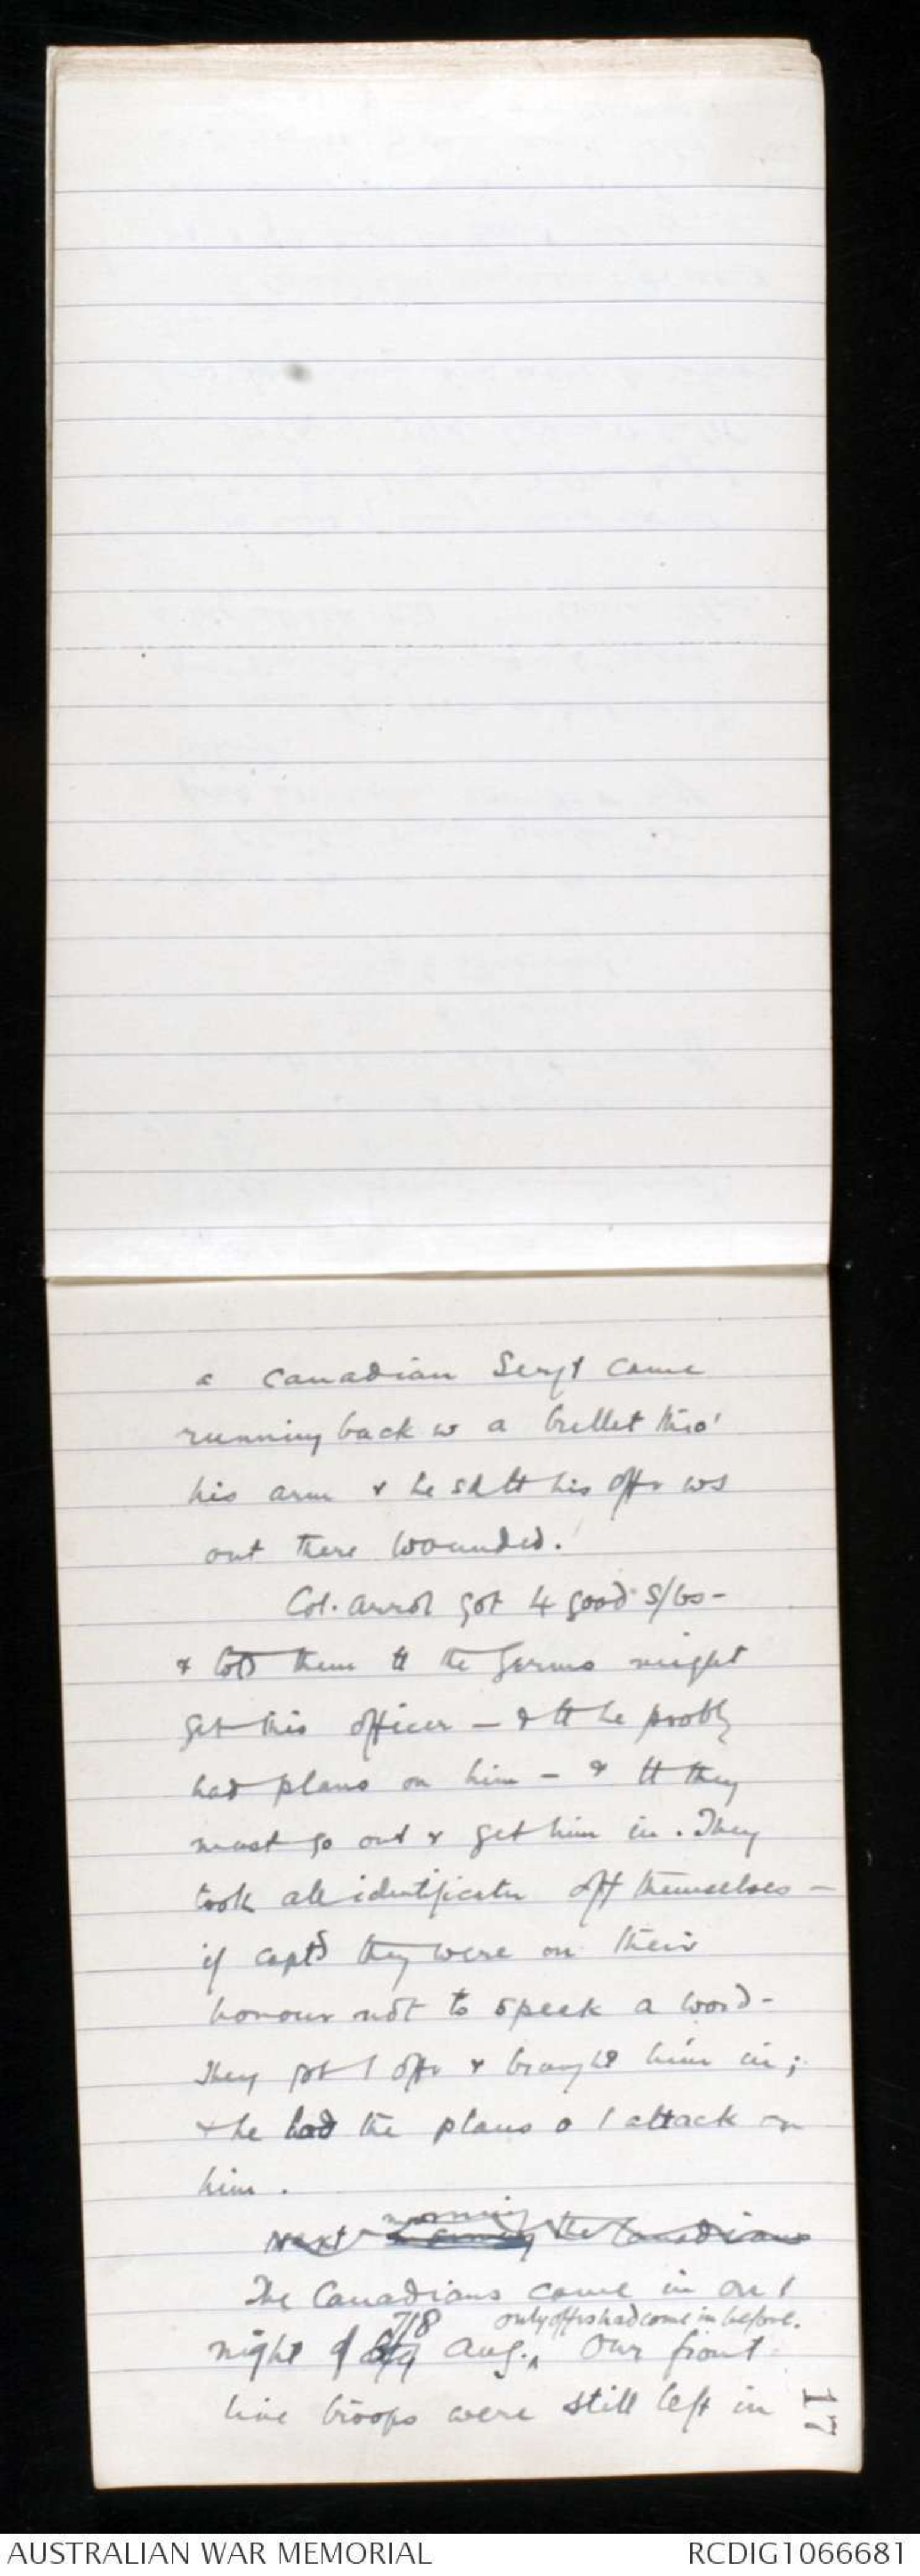 a Canadian Sergt came
running back w a bullet thro'
his arm & he sd tt his offr ws
out there wounded.
Col. Arrol got 4 good S/bs -
& told them tt the Germs might
get this officer - & tt he probly
had plans on him - & tt they
must go out & get him in. They
took all identificatn off themselves -
if captd they were on their
honour not to speak a word -
They got / offr & brought him in;
& he had the plans o / attack on
him.
Next morning the Canadians
The Canadians came in on /
7/8 only offrs had come in before.
night of Aug. ^ Our front
line troops were still left in
17
AUSTRALIAN WAR MEMORIAL
RCDIG1066681